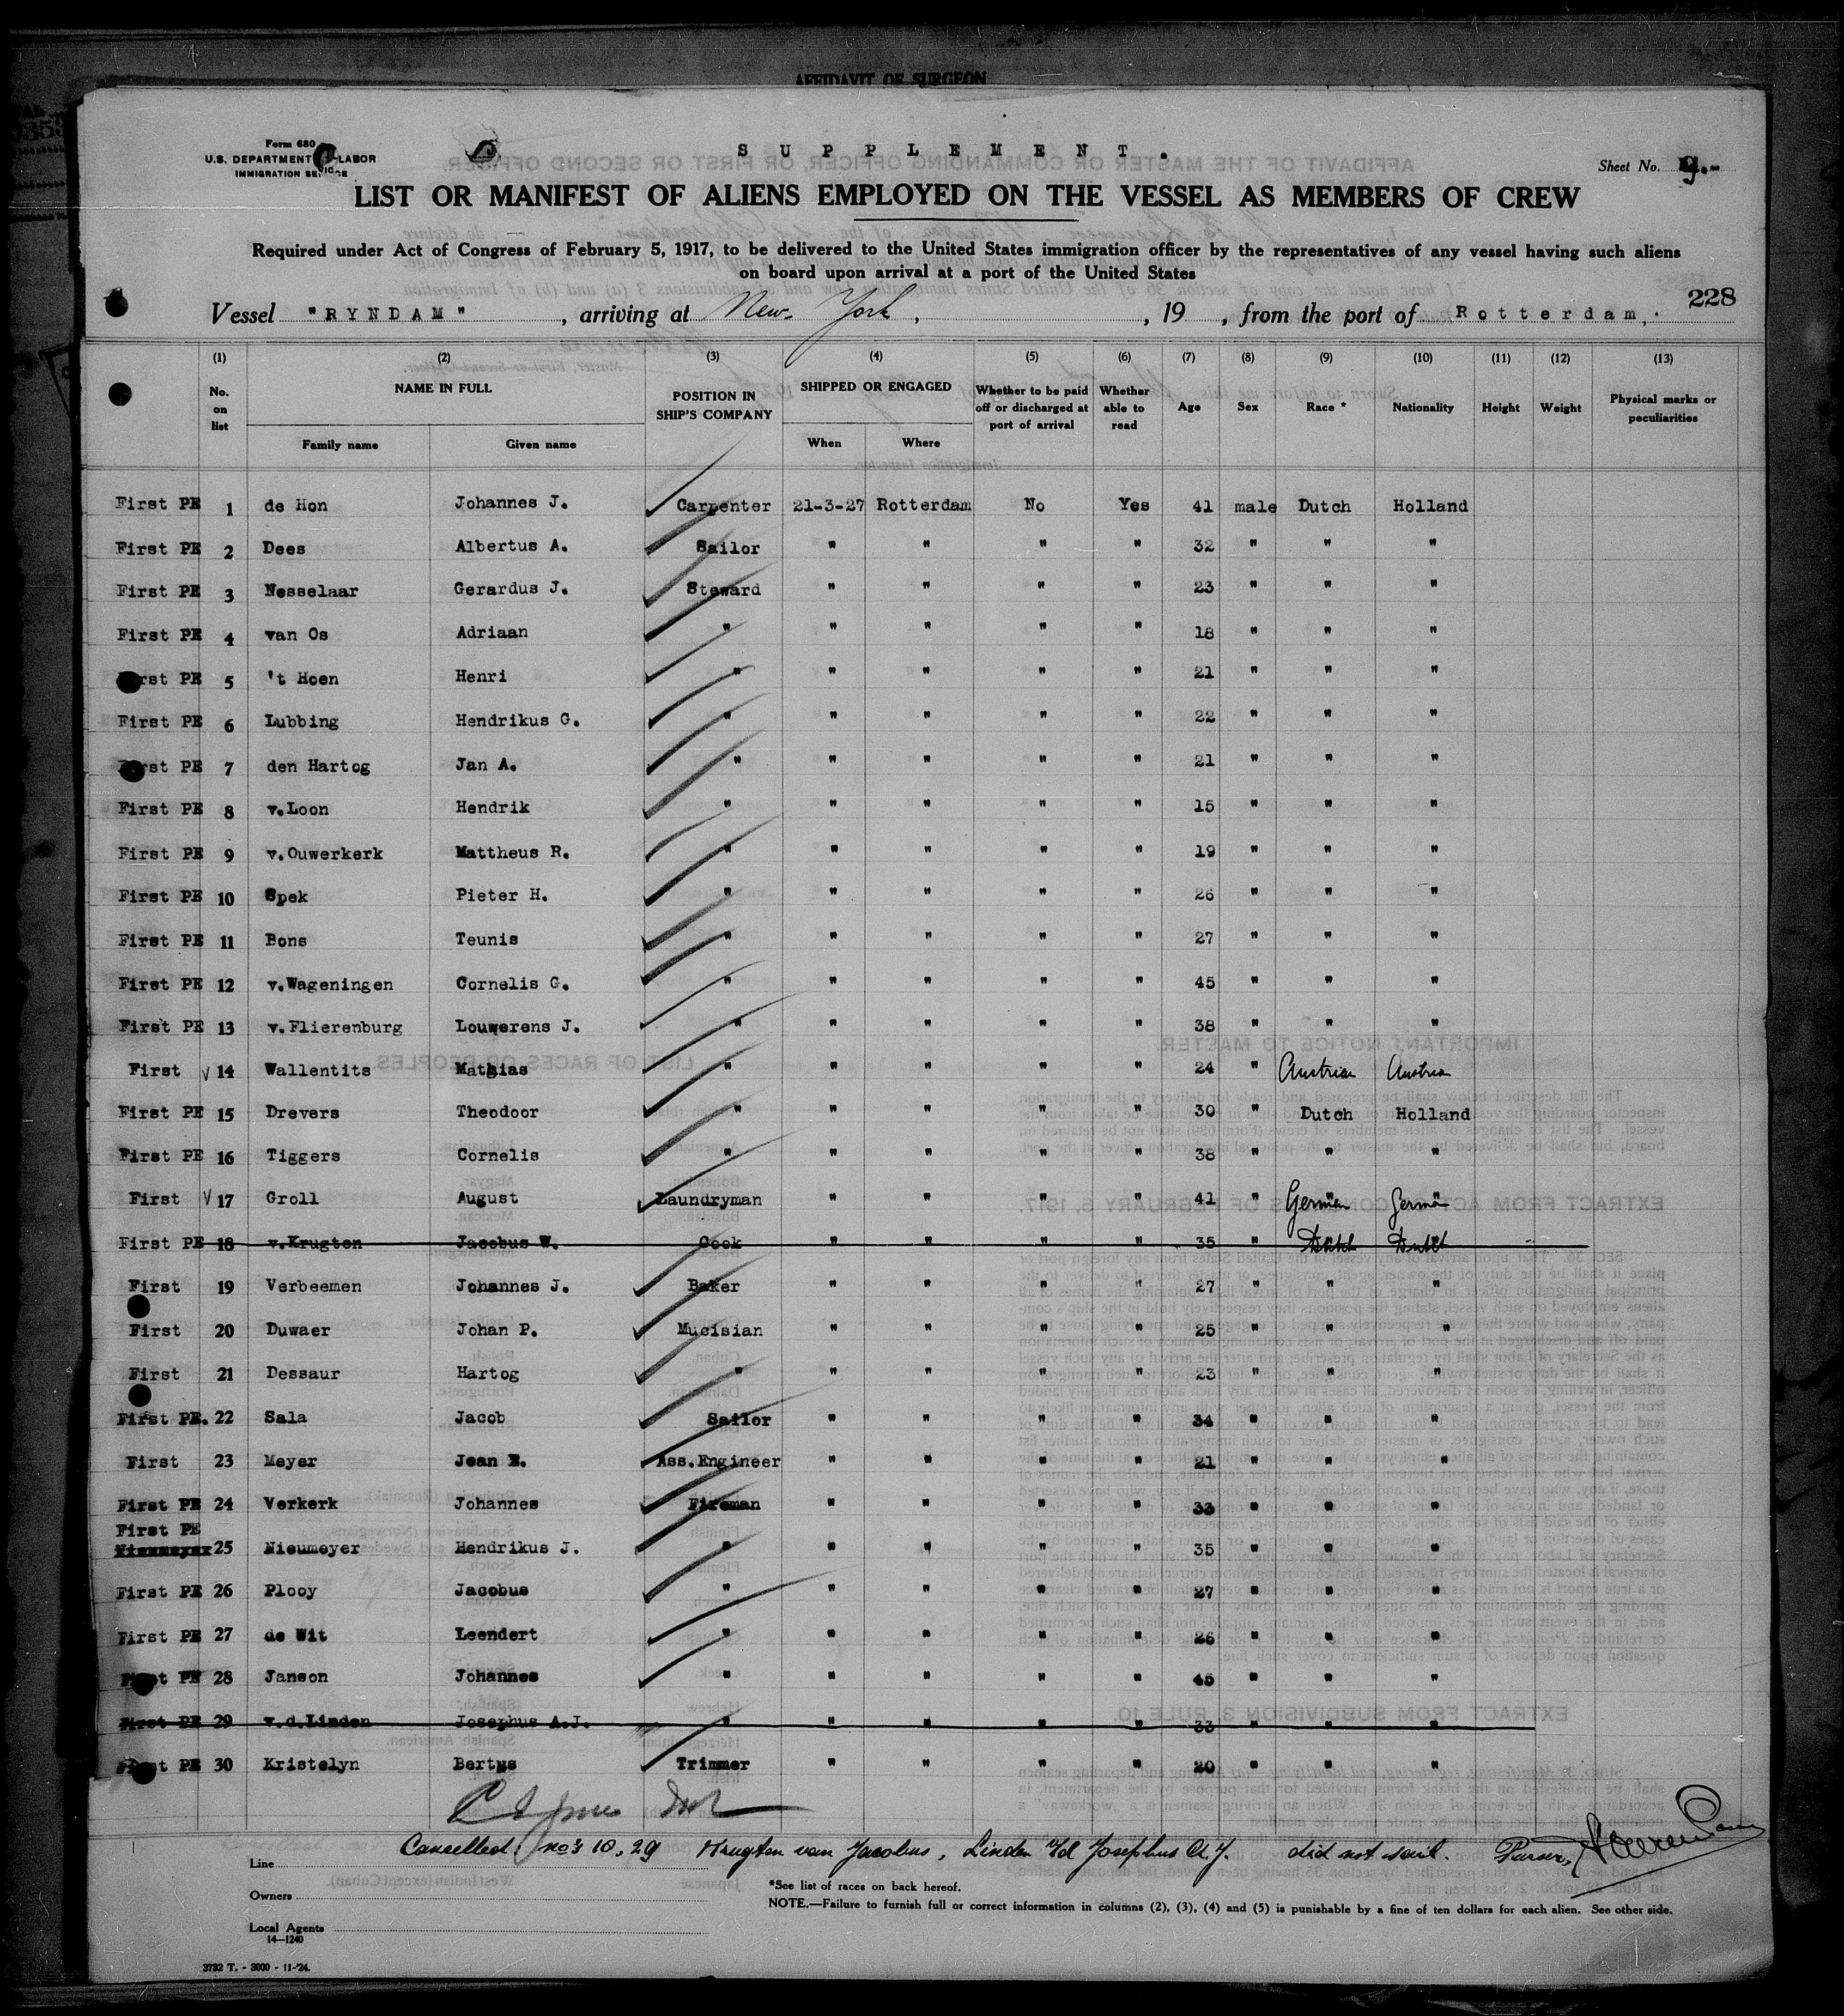 AFFIDAVIT OF SURGEON
Form 680
U.S. DEPARTMENT OF LABOR
IMMIGRATION SERVICE
SUPPLEMENT.
Sheet No. 9.-
LIST OR MANIFEST OF ALIENS EMPLOYED ON THE VESSEL AS MEMBERS OF CREW
Required under Act of Congress of February 5, 1917, to be delivered to the United States immigration officer by the representatives of any vessel having such aliens
on board upon arrival at a port of the United States
228
Vessel "RYNDAM", arriving at New York, , 19 , from the port of Rotterdam,.
(1) (2) (3) (4) (5) (6) (7) (8) (9) (10) (11) (12) (13)
No. on list NAME IN FULL Family name Given name POSITION IN SHIP'S COMPANY SHIPPED OR ENGAGED When Where Whether to be paid off or discharged at port of arrival Whether able to read Age Sex Race * Nationality Height Weight Physical marks or peculiarities
First PE 1 de Hon Johannes J. Carpenter 21-3-27 Rotterdam No Yes 41 male Dutch Holland
First PE 2 Dees Albertus A. Sailor " " " " 32 " " "
First PE 3 Nesselaar Gerardus J. Steward " " " " 23 " " "
First PE 4 van Os Adriaan " " " " " 18 " " "
First PE 5 't Hoen Henri " " " " " 21 " " "
First PE 6 Lubbing Hendrikus G. " " " " " 22 " " "
First PE 7 den Hartog Jan A. " " " " " 21 " " "
First PE 8 v.Loon Hendrik " " " " " 15 " " "
First PE 9 v.Ouwerkerk Mattheus R. " " " " " 19 " " "
First PE 10 Spek Pieter H. " " " " " 26 " " "
First PE 11 Bons Teunis " " " " " 27 " " "
First PE 12 v.Wageningen Cornelis G. " " " " " 45 " " "
First PE 13 v.Flierenburg Louwerens J. " " " " " 38 " " "
First √ 14 Wallentits Mathias " " " " " 24 " Austrian Austria
First PE 15 Drevers Theodoor " " " " " 30 " Dutch Holland
First PE 16 Tiggers Cornelis " " " " " 38 " " "
First √ 17 Groll August Laundryman " " " " 41 " German German
First PE 18 v.Krugten Jacobus W. Cook " " " " 35 " Dutch Dutch
First 19 Verbeemen Johannes J. Baker " " " " 27 " " "
First 20 Duwaer Johan P. Mucisian " " " " 25 " " "
First 21 Dessaur Hartog " " " " " 23 " " "
First PE. 22 Sala Jacob Sailor " " " " 34 " " "
First 23 Meyer Jean E. Ass.Engineer " " " " 21 " " "
First PE 24 Verkerk Johannes Fireman " " " " 33 " " "
First PE
Nieumeyer 25 Nieumeyer Hendrikus J. " " " " " 35 " " "
First PE 26 Plooy Jacobus " " " " " 27 " " "
First PE 27 de Wit Leendert " " " " " 26 " " "
First PE 28 Janson Johannes " " " " " 45 " " "
First PE 29 v.d.Linden Josephus A.J. " " " " " 33 " " "
First PE 30 Kristelyn Bertus Trimmer " " " " 20 " " "
Cancelled, nos 10, 29 Krugten van Jacobus, Linden v/d Josephus A.J. did not sail. Purser,
Line
*See list of races on back hereof.
Owners
NOTE.—Failure to furnish full or correct information in columns (2), (3), (4) and (5) is punishable by a fine of ten dollars for each alien. See other side.
Local Agents
14—1240
3732 T. - 3000 - 11-'24.